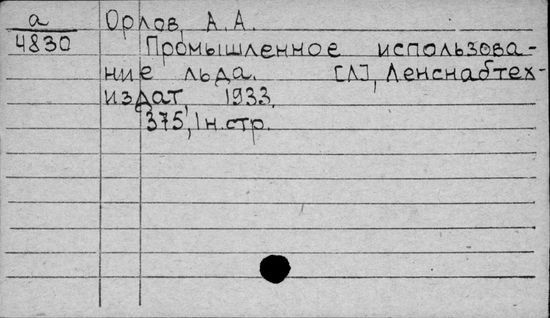 а Орлов, А. А.
4830 Промышленное использова-
ние льда. [Л], Ленснабтех-
издат, 1933.
375, 1 н.стр.